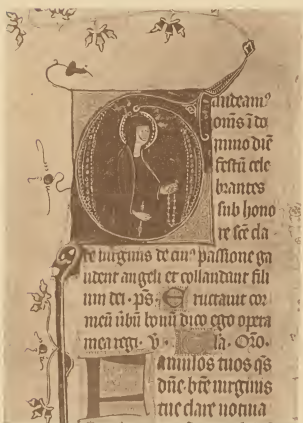 audeam⁹
om̅s ī do
mino diē
festū cele
brantes
sub hono
re sc̄e cla
re virginis de cui⁹ passione ga
udent angeli et collaudant fili
um dei · ps̄. Eructauit cor
meū ūbū bonū dico ego opera
mea regi. V. la. Oro.
amulos tuos q̄s
dūe. btē virginis
tue clare uotiua